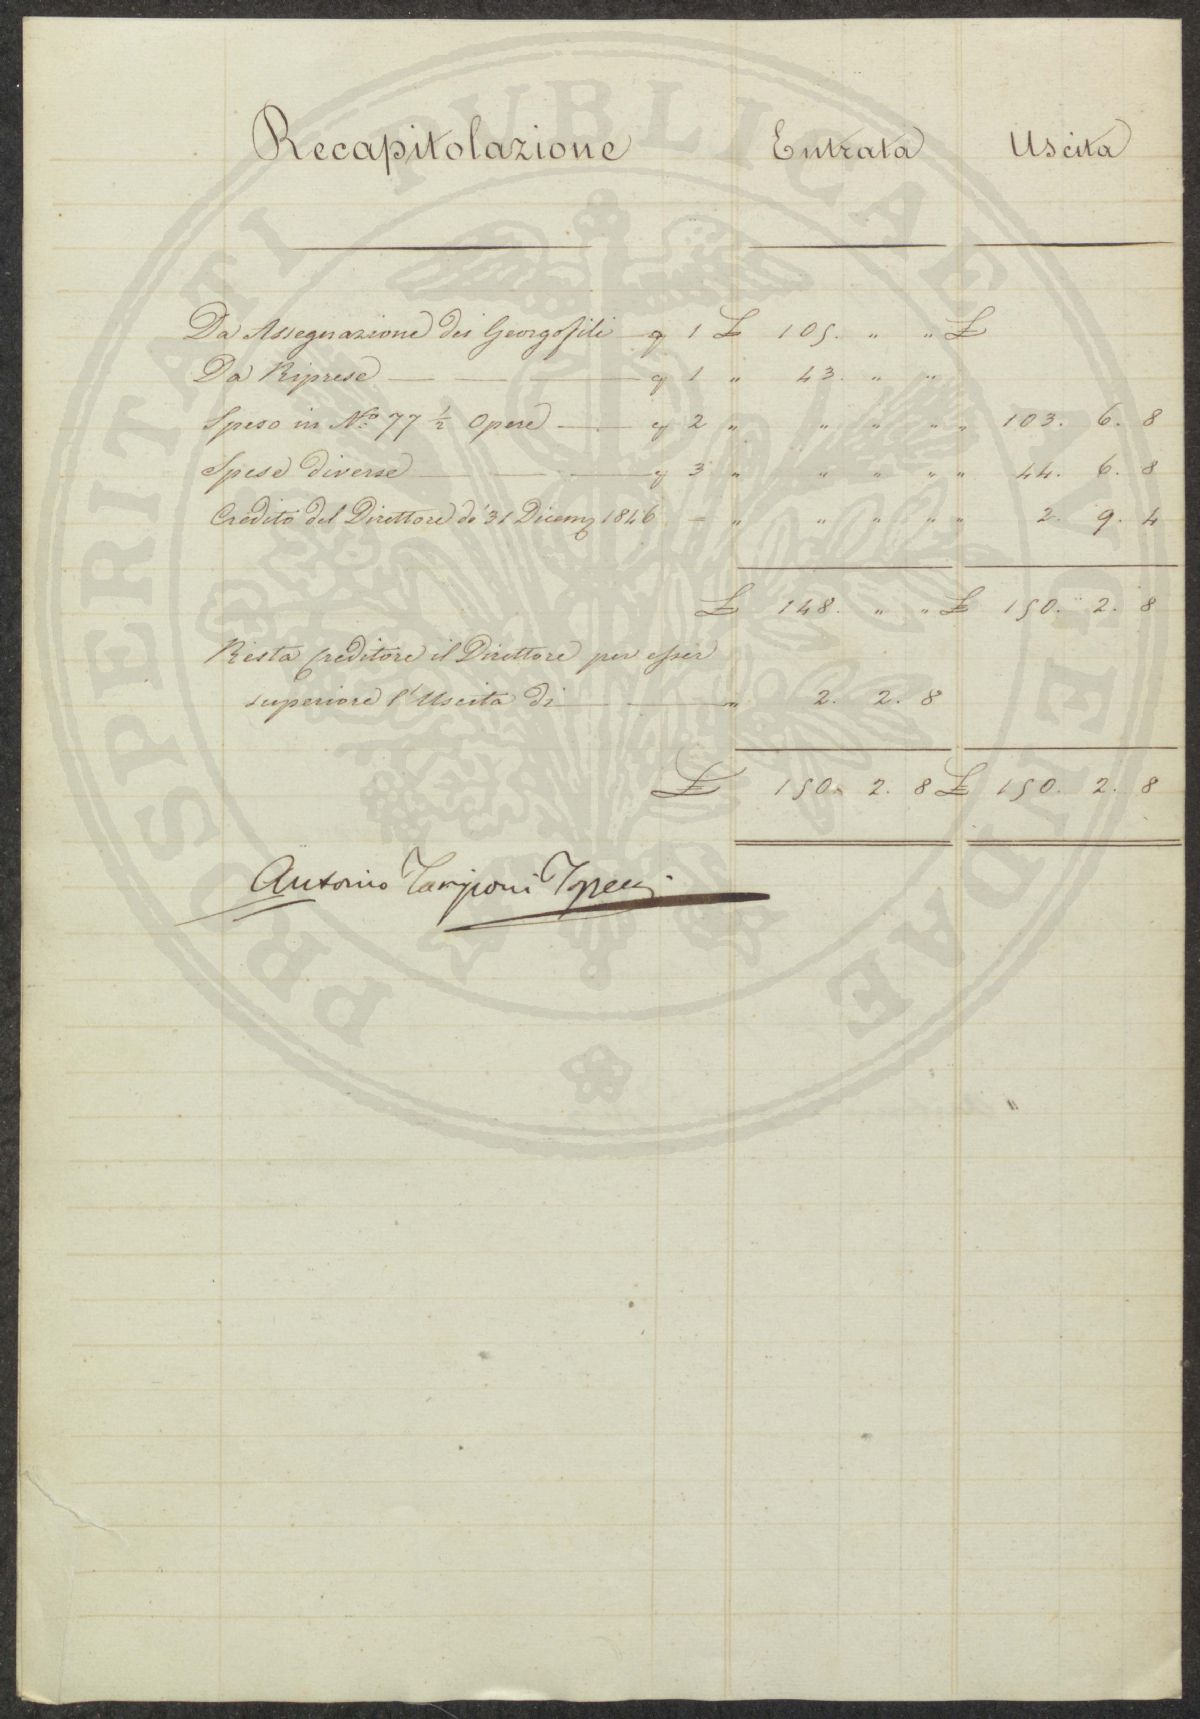 Recapitolazione Entrata Uscita
Da Assegnazione dei Georgofili 1 £ 105. " " £
Da Riprese 1 " 43. " "
Speso in N.º 77 ½ Opere 2 " " " " " 103. 6. 8
Spese diverse 3 " " " " " 44. 6. 8
Credito del Direttore de' 31 Dicem 1846 — " " " " " 2. 9. 4
£ 148. " " £ 150. 2. 8
Resta Creditore il Direttore per esser
superiore l'Uscita di " 2. 2. 8
£ 150. 2. 8 £ 150. 2. 8
Antonio Targioni Tozzetti
PROSPERITATI PUBLICAE AUGENDAE